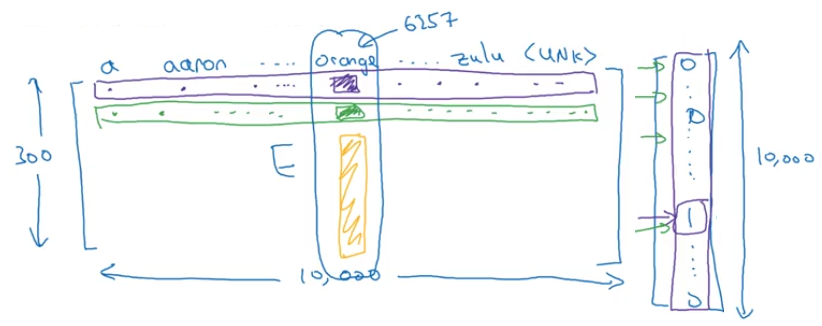 6257
a aaron ..... orange ..... zulu <UNK>
300
E
10,000
0
0
1
0
10,000